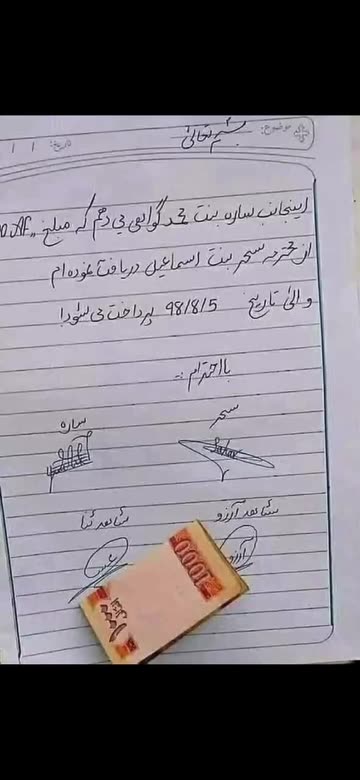 موضوع:
تاریخ: / /
بسم تعالیٰ
اینجانب ساره بنت محمد گواهی می دهم که مبلغ
از محترمه سحر بنت اسماعیل دریافت نموده ام
و الیٰ تاریخ 98/8/5 پرداخت می شود!
با احترام :-
سحر
ساره
شاهد آرزو
شاهد ثنا
آرزو
1000